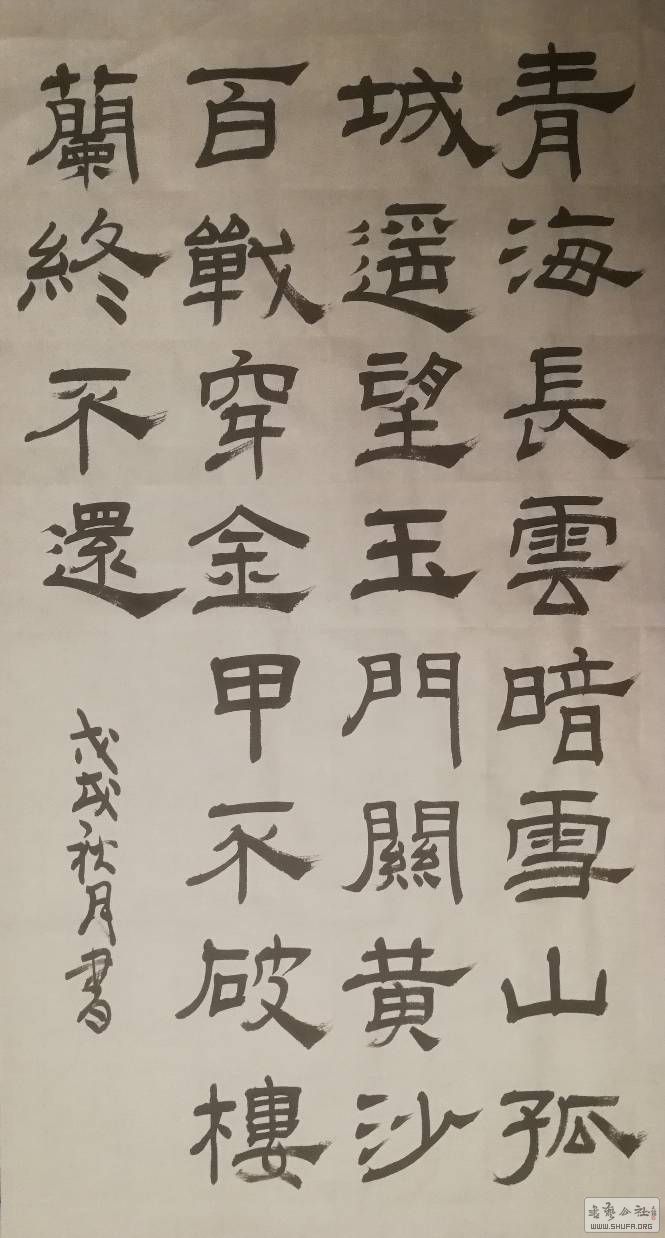 青海長雲暗雪山孤
城遥望玉門關黄沙
百戰穿金甲不破樓
蘭終不還
戊戌秋月書
WWW.SHUFA.ORG